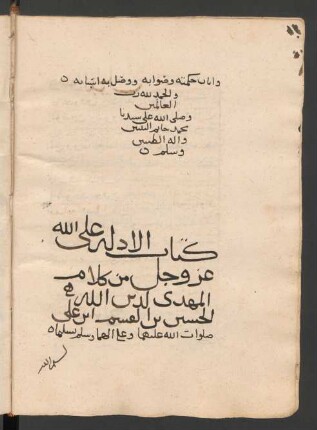 وابان حكمته وصوابه ووصل به اسبابه ٥
والحمد لله رب
العالمين
وصلى الله على سيدنا
محمد خاتم النبيين
واله الطيبين
وسلم ٥
كتاب الادلة على الله
عز وجل من كلام
المهدي لدين الله
الحسين بن القسم ابن علي
صلوات الله عليهما وعلى الهما وسلم تسليما ٥